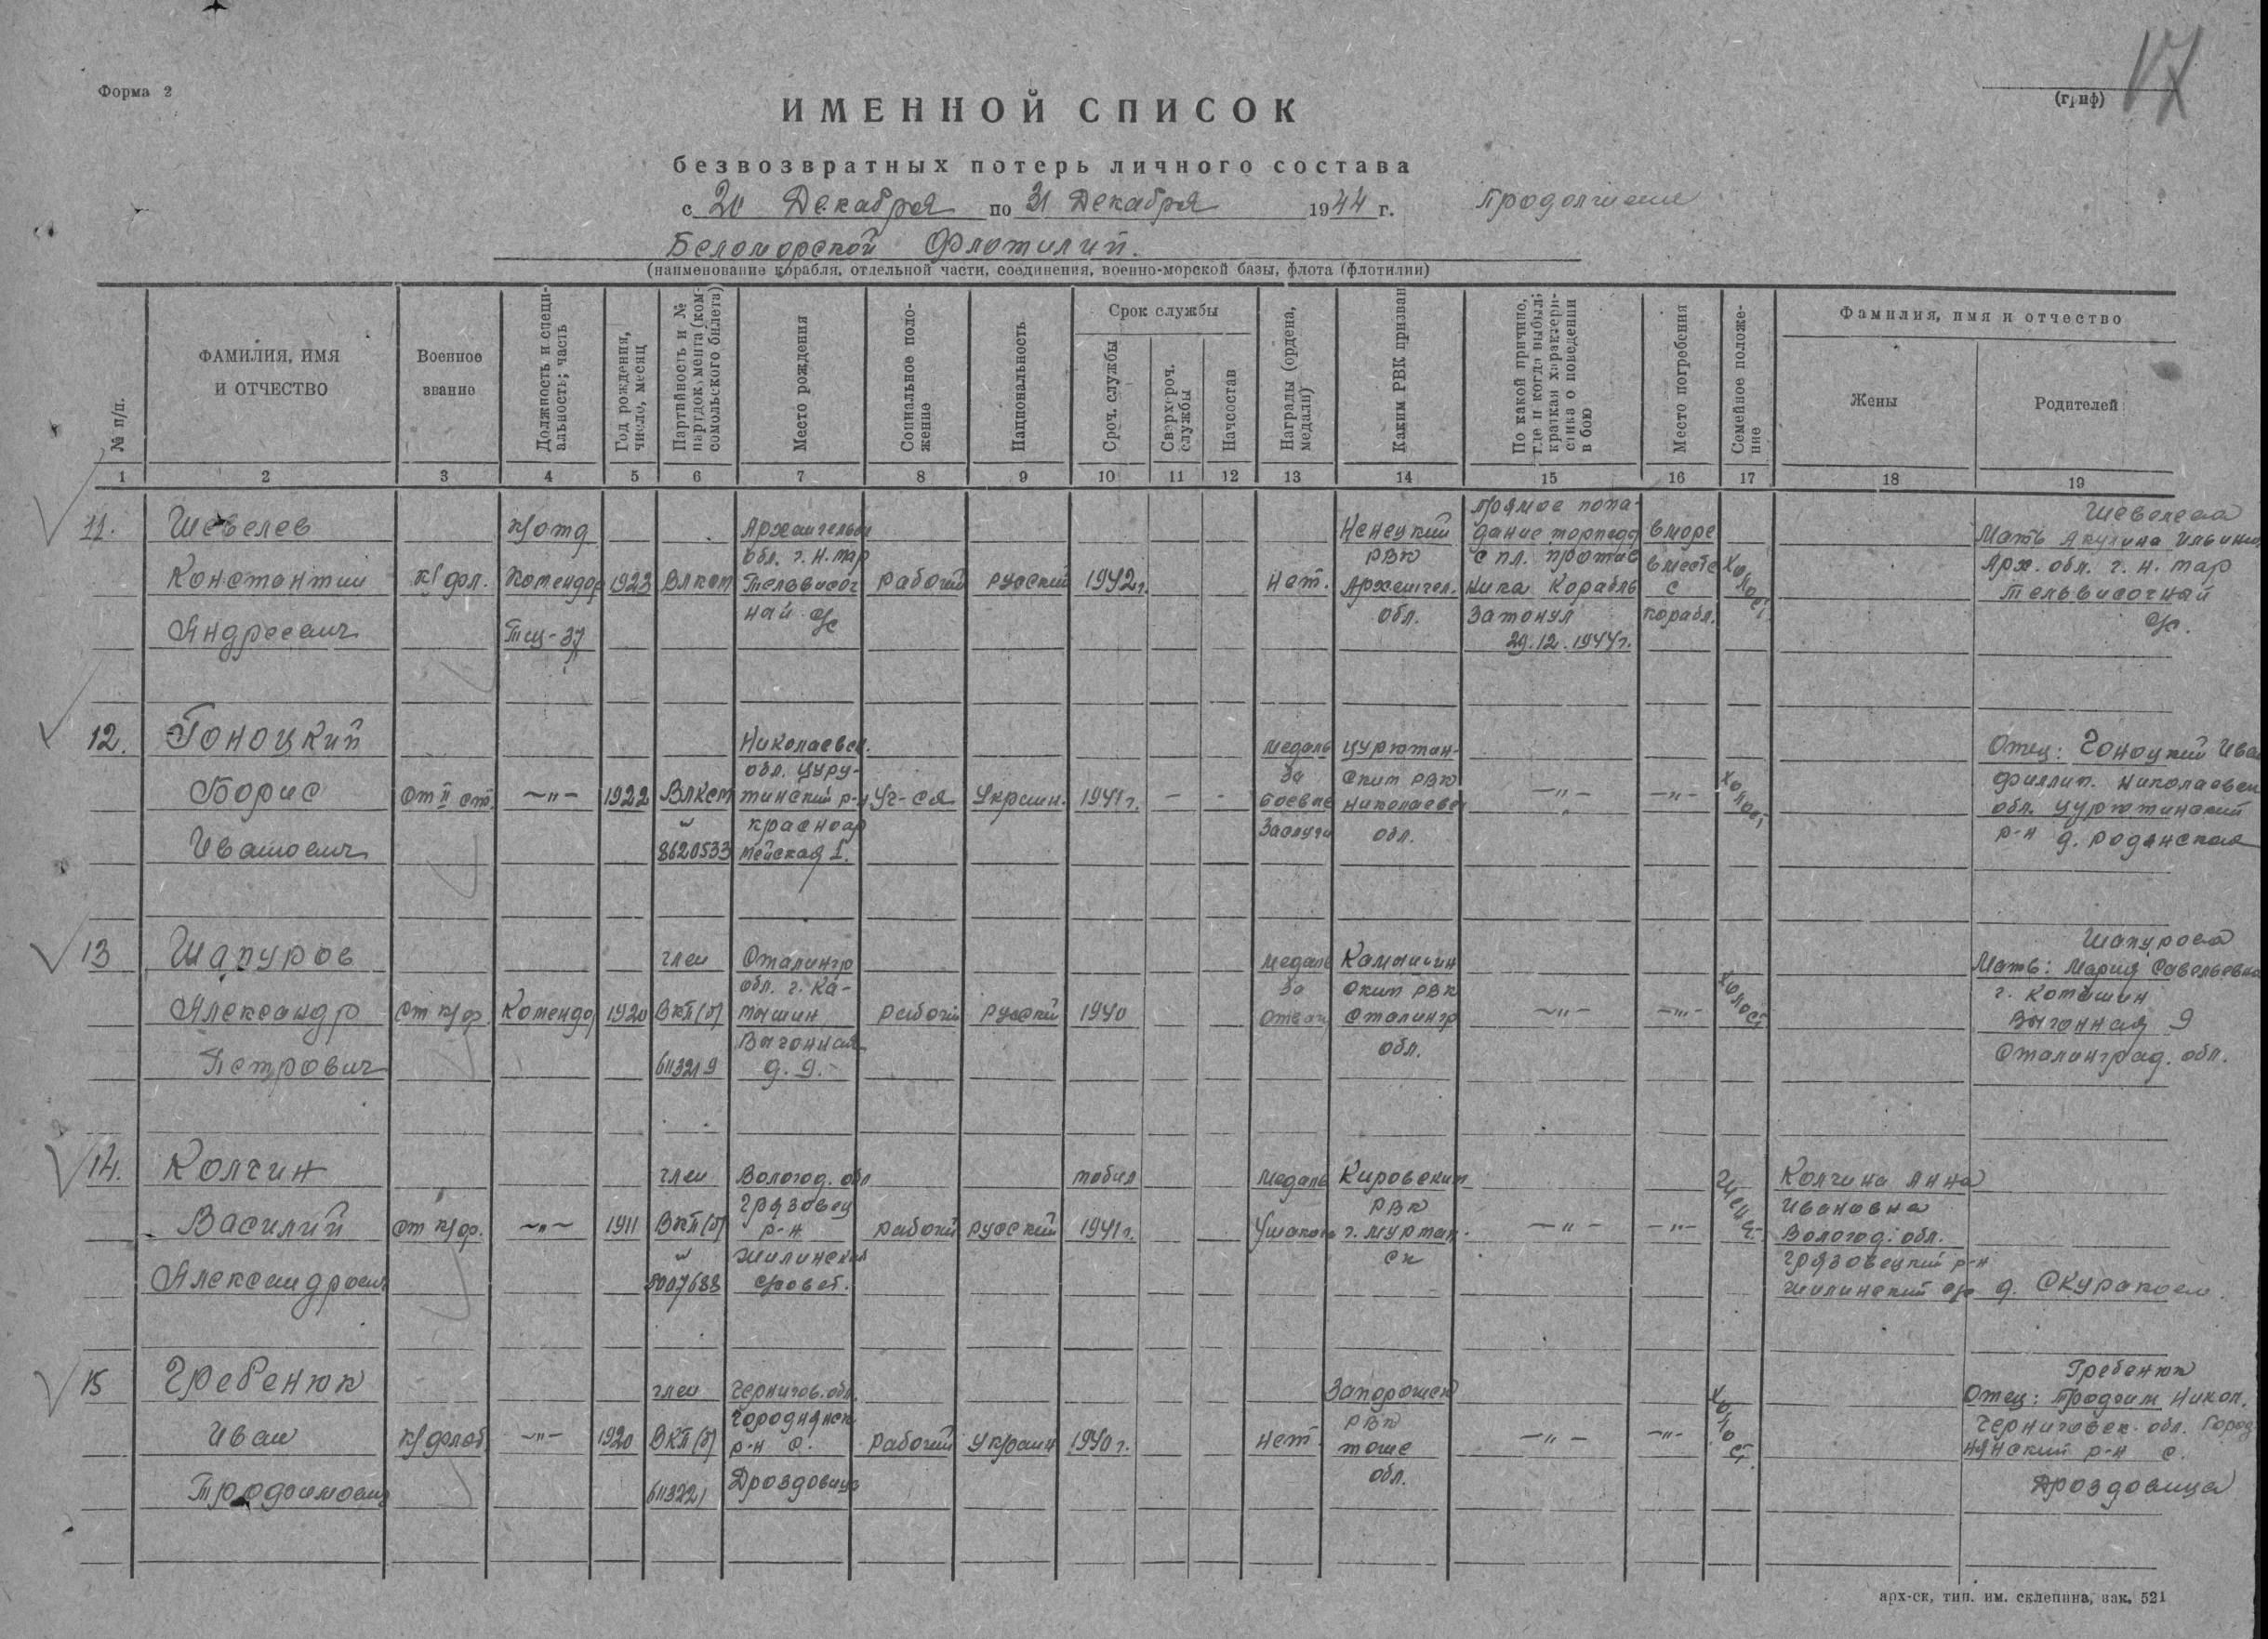 Форма 2
(гриф)
17
ИМЕННОЙ СПИСОК
безвозвратных потерь личного состава
с 20 Декабря по 31 Декабря 1944 г. Продолжение
Беломорской Флотилии.
(наименование корабля, отдельной части, соединения, военно-морской базы, флота (флотилии)
№ п/п.
ФАМИЛИЯ, ИМЯ
И ОТЧЕСТВО
Военное
звание
Должность и специ-
альность; часть
Год рождения,
число, месяц
Партийность и №
партдокумента (ком-
сомольского билета)
Место рождения
Социальное поло-
жение
Национальность
Срок службы
Сроч. службы
Сверхсроч.
службы
Начсостав
Награды (ордена,
медали)
Каким РВК призван
По какой причине,
где и когда выбыл;
краткая характери-
стика о поведении
в бою
Место погребения
Семейное положе-
ние
Фамилия, имя и отчество
Жены
Родителей
1 2 3 4 5 6 7 8 9 10 11 12 13 14 15 16 17 18 19
11.
Шевелев
Константин
Андреевич
к/фл.
к/отд
Комендор
Тщ-37
1923
Влксм
Архангельск
обл. г. Н. мар
Тельвисоч
ный с/с
рабочий
русский
1942г.
Нет.
Ненецкий
РВК
Архангел.
обл.
Прямое попа-
дание торпеды
с пл. против
ника корабль
Затонул
29.12.1944г.
в море
вместе
с
корабл.
Холост
Шевелева
Мать Ильин
Арх. обл. г. Н. мар
тельвисочный
с/с.
12.
Гоноцкий
Борис
Иванович
Ст II ст.
—"—
1922
Влксм
8620533
Николаевск.
обл. Цурю-
тинский р-н
красноар
мейская 1.
Уч-ся
Украин.
1941г.
- -
медаль
За
боевые
Заслуги
цурютин-
ский РВК
Николаевс
обл.
—"—
—"—
Холост
Отец: Гоноцкий Ива
филлип. Николаевск
обл. цурютинский
р-н
13
Шапуров
Александр
Петрович
Ст к/ф.
Комендо
1920
член
ВКП(б)
6113219
Сталингр
обл. г. Ка-
мышин
Выгонная
д. 9.
рабочий
русский
1940
медаль
За
отваг
Камышин
ский РВК
Сталингр
обл.
—"—
—"—
Холост
Шапурова
Мать: Мария Савельевна
г. Комышин
Выгонная 9
Сталинград. обл.
14.
Колчин
Василий
Александрович
ст к/ф.
—"—
1911
член
ВКП(б)
5007688
Вологод. обл
Грязовец
р-н
Жилинский
с/совет.
рабочий
русский
мобил
1941г.
медаль
Ушакова
Кировским
РВК
г. мурман
ск
—"—
—"—
Женат
Колчина Анна
Ивановна
Вологод. обл.
Грязовецкий р-н
Жилинский с/с д.
15
Гребенюк
Иван
Трофимович
к/флот
—"—
1920
член
ВКП(б)
6113221
Чернигов. обл.
Городнянск
р-н с.
Дроздовица
рабочий
Украин
1940г.
нет.
Запорожск
РВК
тоже
обл.
—"—
—"—
Холост.
Гребенюк
Отец: Трофим Никол.
Черниговск. обл. Город
нянский р-н с.
Дроздовица
арх-ск, тип. им. склепина, зак. 521